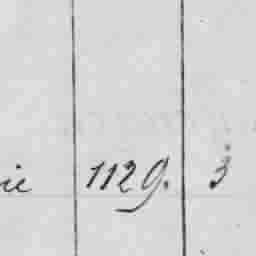 ie 1129. 3